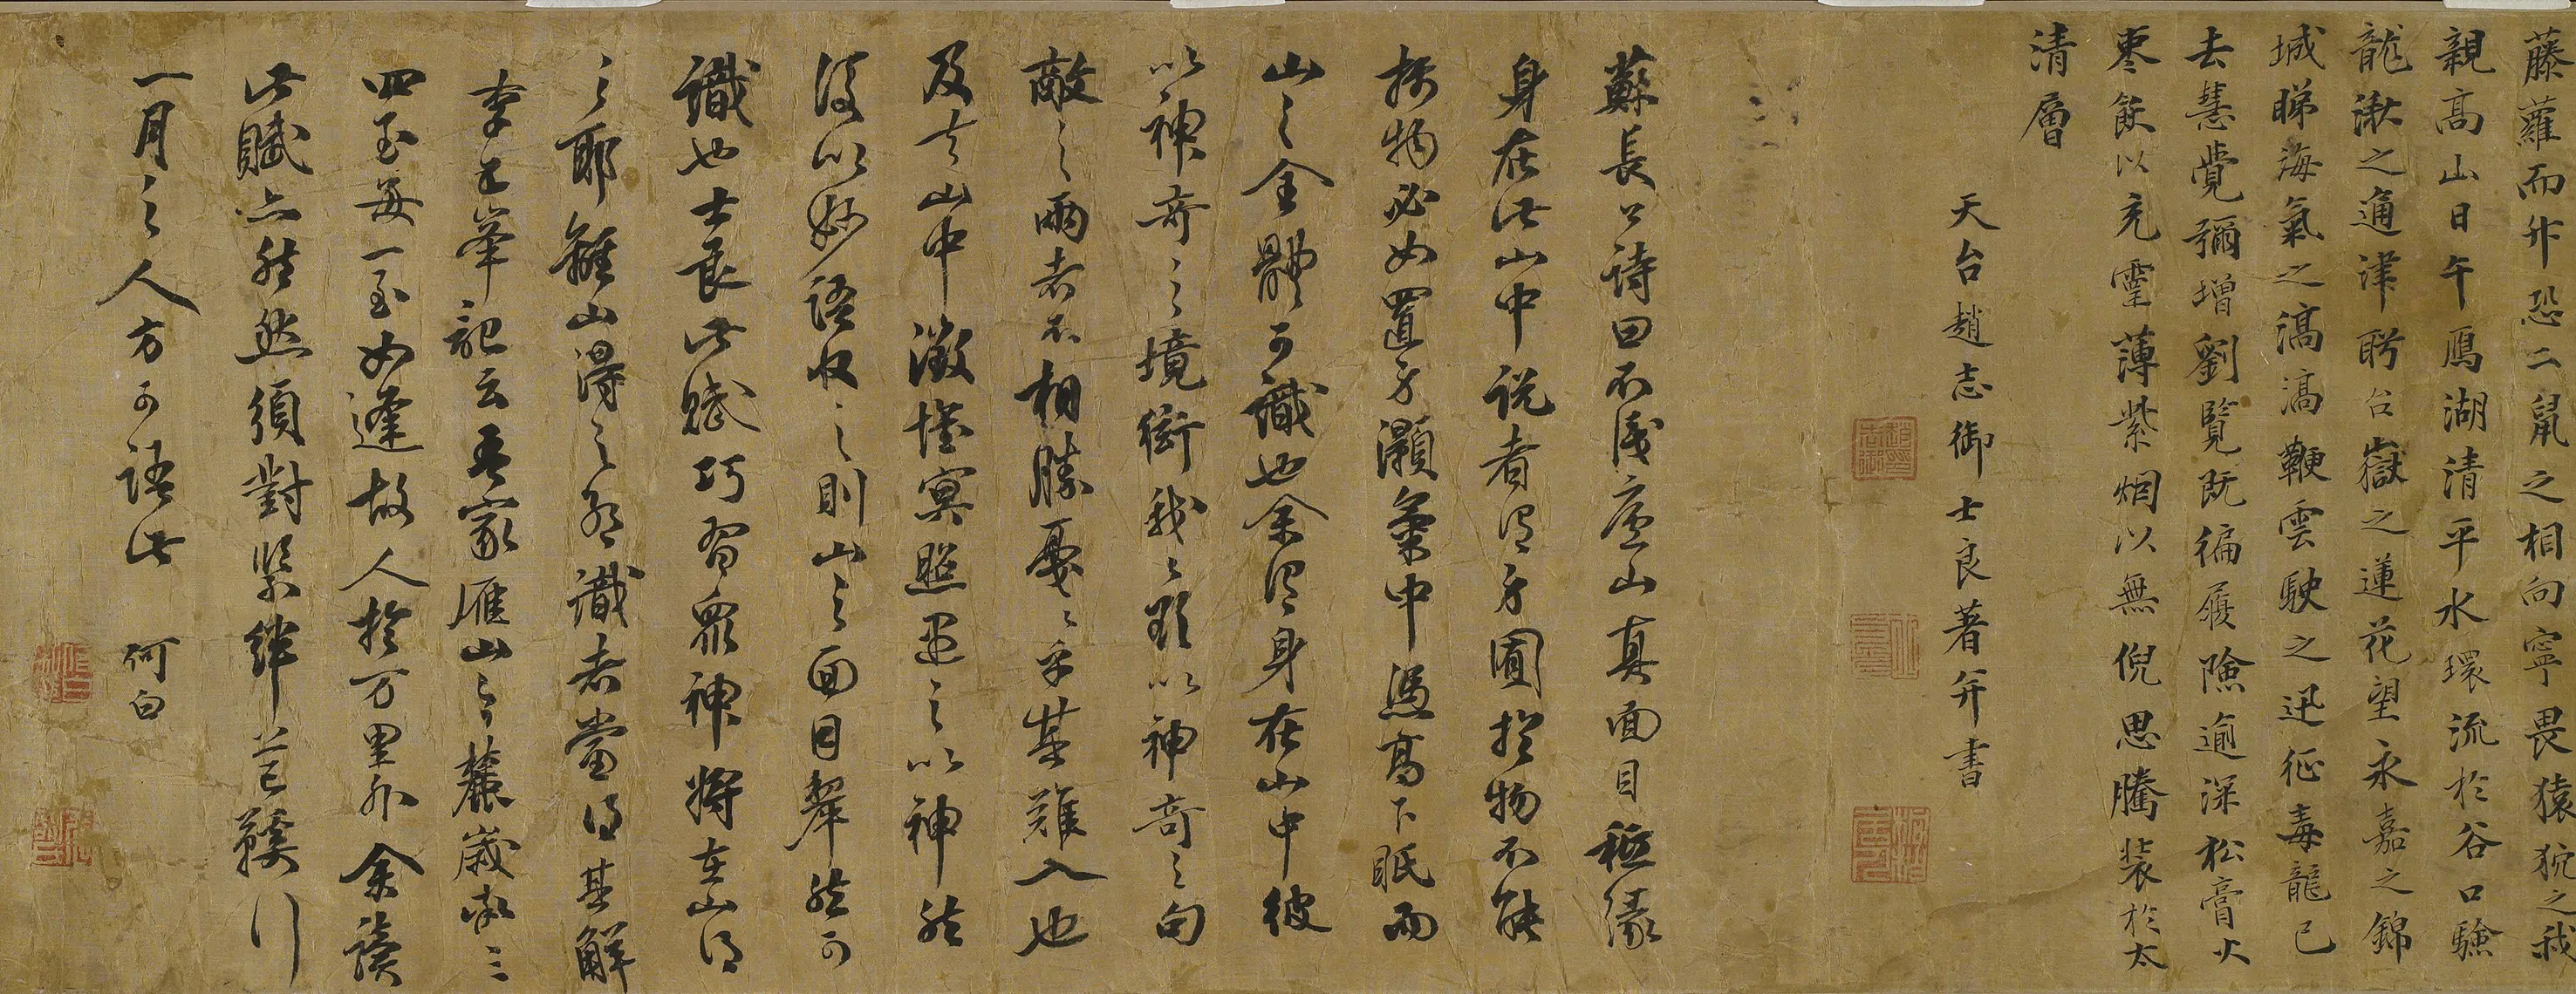 藤蘿而升恐二鼠之相向寧畏猿狖之我
親高山日午鴈湖清平水環流於谷口驗
龍湫之通津聆台嶽之蓮花望永嘉之錦
城睇海氣之滈滈鞭雲駛之迅征毒龍已
去慧覺彌增劉覽既徧履險逾深松膏火
棗飲以充霊薄紫烟以無倪思騰裝於太
清層
天台趙志御士良著并書
蘇長公詩曰不識廬山真面目秪緣
身在此山中説者謂方圓於物不能
極物必如置身灝氣中馮高下眂而
山之全體可識也余謂身在山中彼
以神奇之境衝我我以神奇之句
敵之兩者不相勝戞戞乎其難入也
及去山中澂懷冥照遇之以神然
後以妙語收之則山之面目犂然可
識也士良此賦巧習衆神將在山得
之耶離山得之耶識者當得其解
李五峯記云吾家雁山之麓歲率三
四至每一至如逢故人於万里外余讀
此賦亦然然須對緊絆芒鞵行
一月之人方可語此 何白